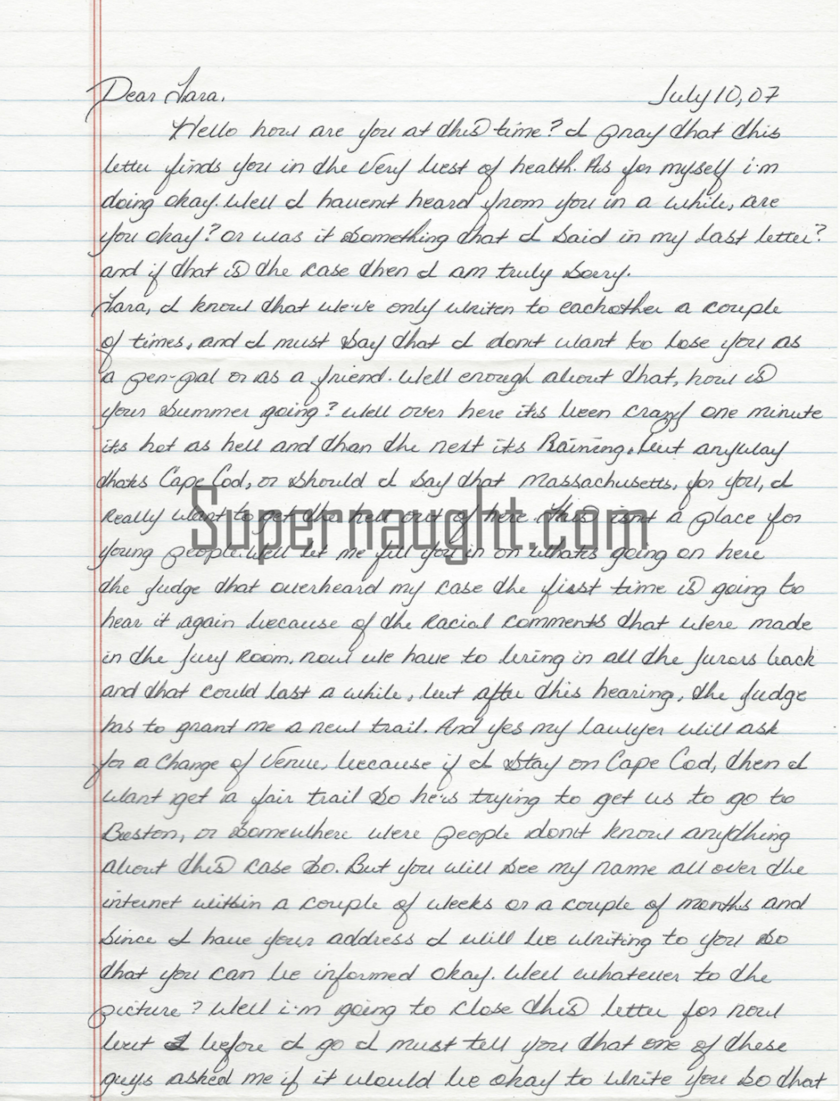 Dear Lara. July 10, 07
Hello how are you at this time? I pray that this
letter finds you in the very best of health. As for myself i'm
doing okay. Well I haven't heard from you in a while, are
you okay? or was it something that I said in my last letter?
and if that is the case then I am truly sorry.
Lara, I know that we've only writen to eachother a couple
of times, and I must say that I don't want to lose you as
a pen-pal or as a friend. Well enough about that, how is
your summer going? Well over here it's been crazy one minute
its hot as hell and than the next its Raining. but anyway
thats Cape Cod, or should I say that Massachusetts, for you, I
really want to get the hell out of here. This isn't a place for
young people. Well let me fill you in on what's going on here
the Judge that overheard my case the first time is going to
hear it again because of the racial comments that were made
in the Jury Room. now we have to bring in all the Jurors back
and that could last a while, but after this hearing, the Judge
has to grant me a new trail. And yes my lawyer will ask
for a Change of Venue, because if I stay on Cape Cod, then I
want get a fair trail so he's trying to get us to go to
Boston, or somewhere were people don't know anything
about this case so. But you will see my name all over the
internet within a couple of weeks or a couple of months and
since I have your address I will be writing to you so
that you can be informed okay. Well whatever to the
picture? Well i'm going to close this letter for now
but I before I go I must tell you that one of these
guys asked me if it would be okay to write you so that
Supernaught.com